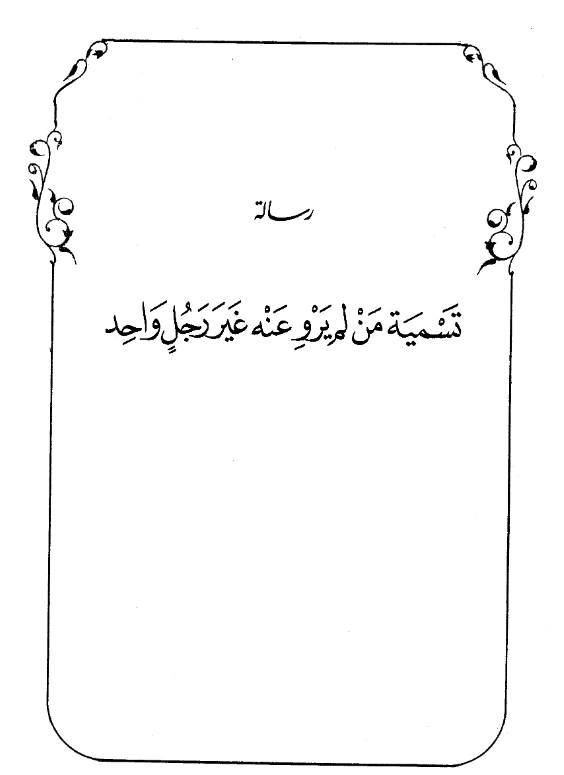 رسالة
تَسْمِيَة مَنْ لم يَرْوِ عَنْه غَيَر رَجُلٍ وَاحِد